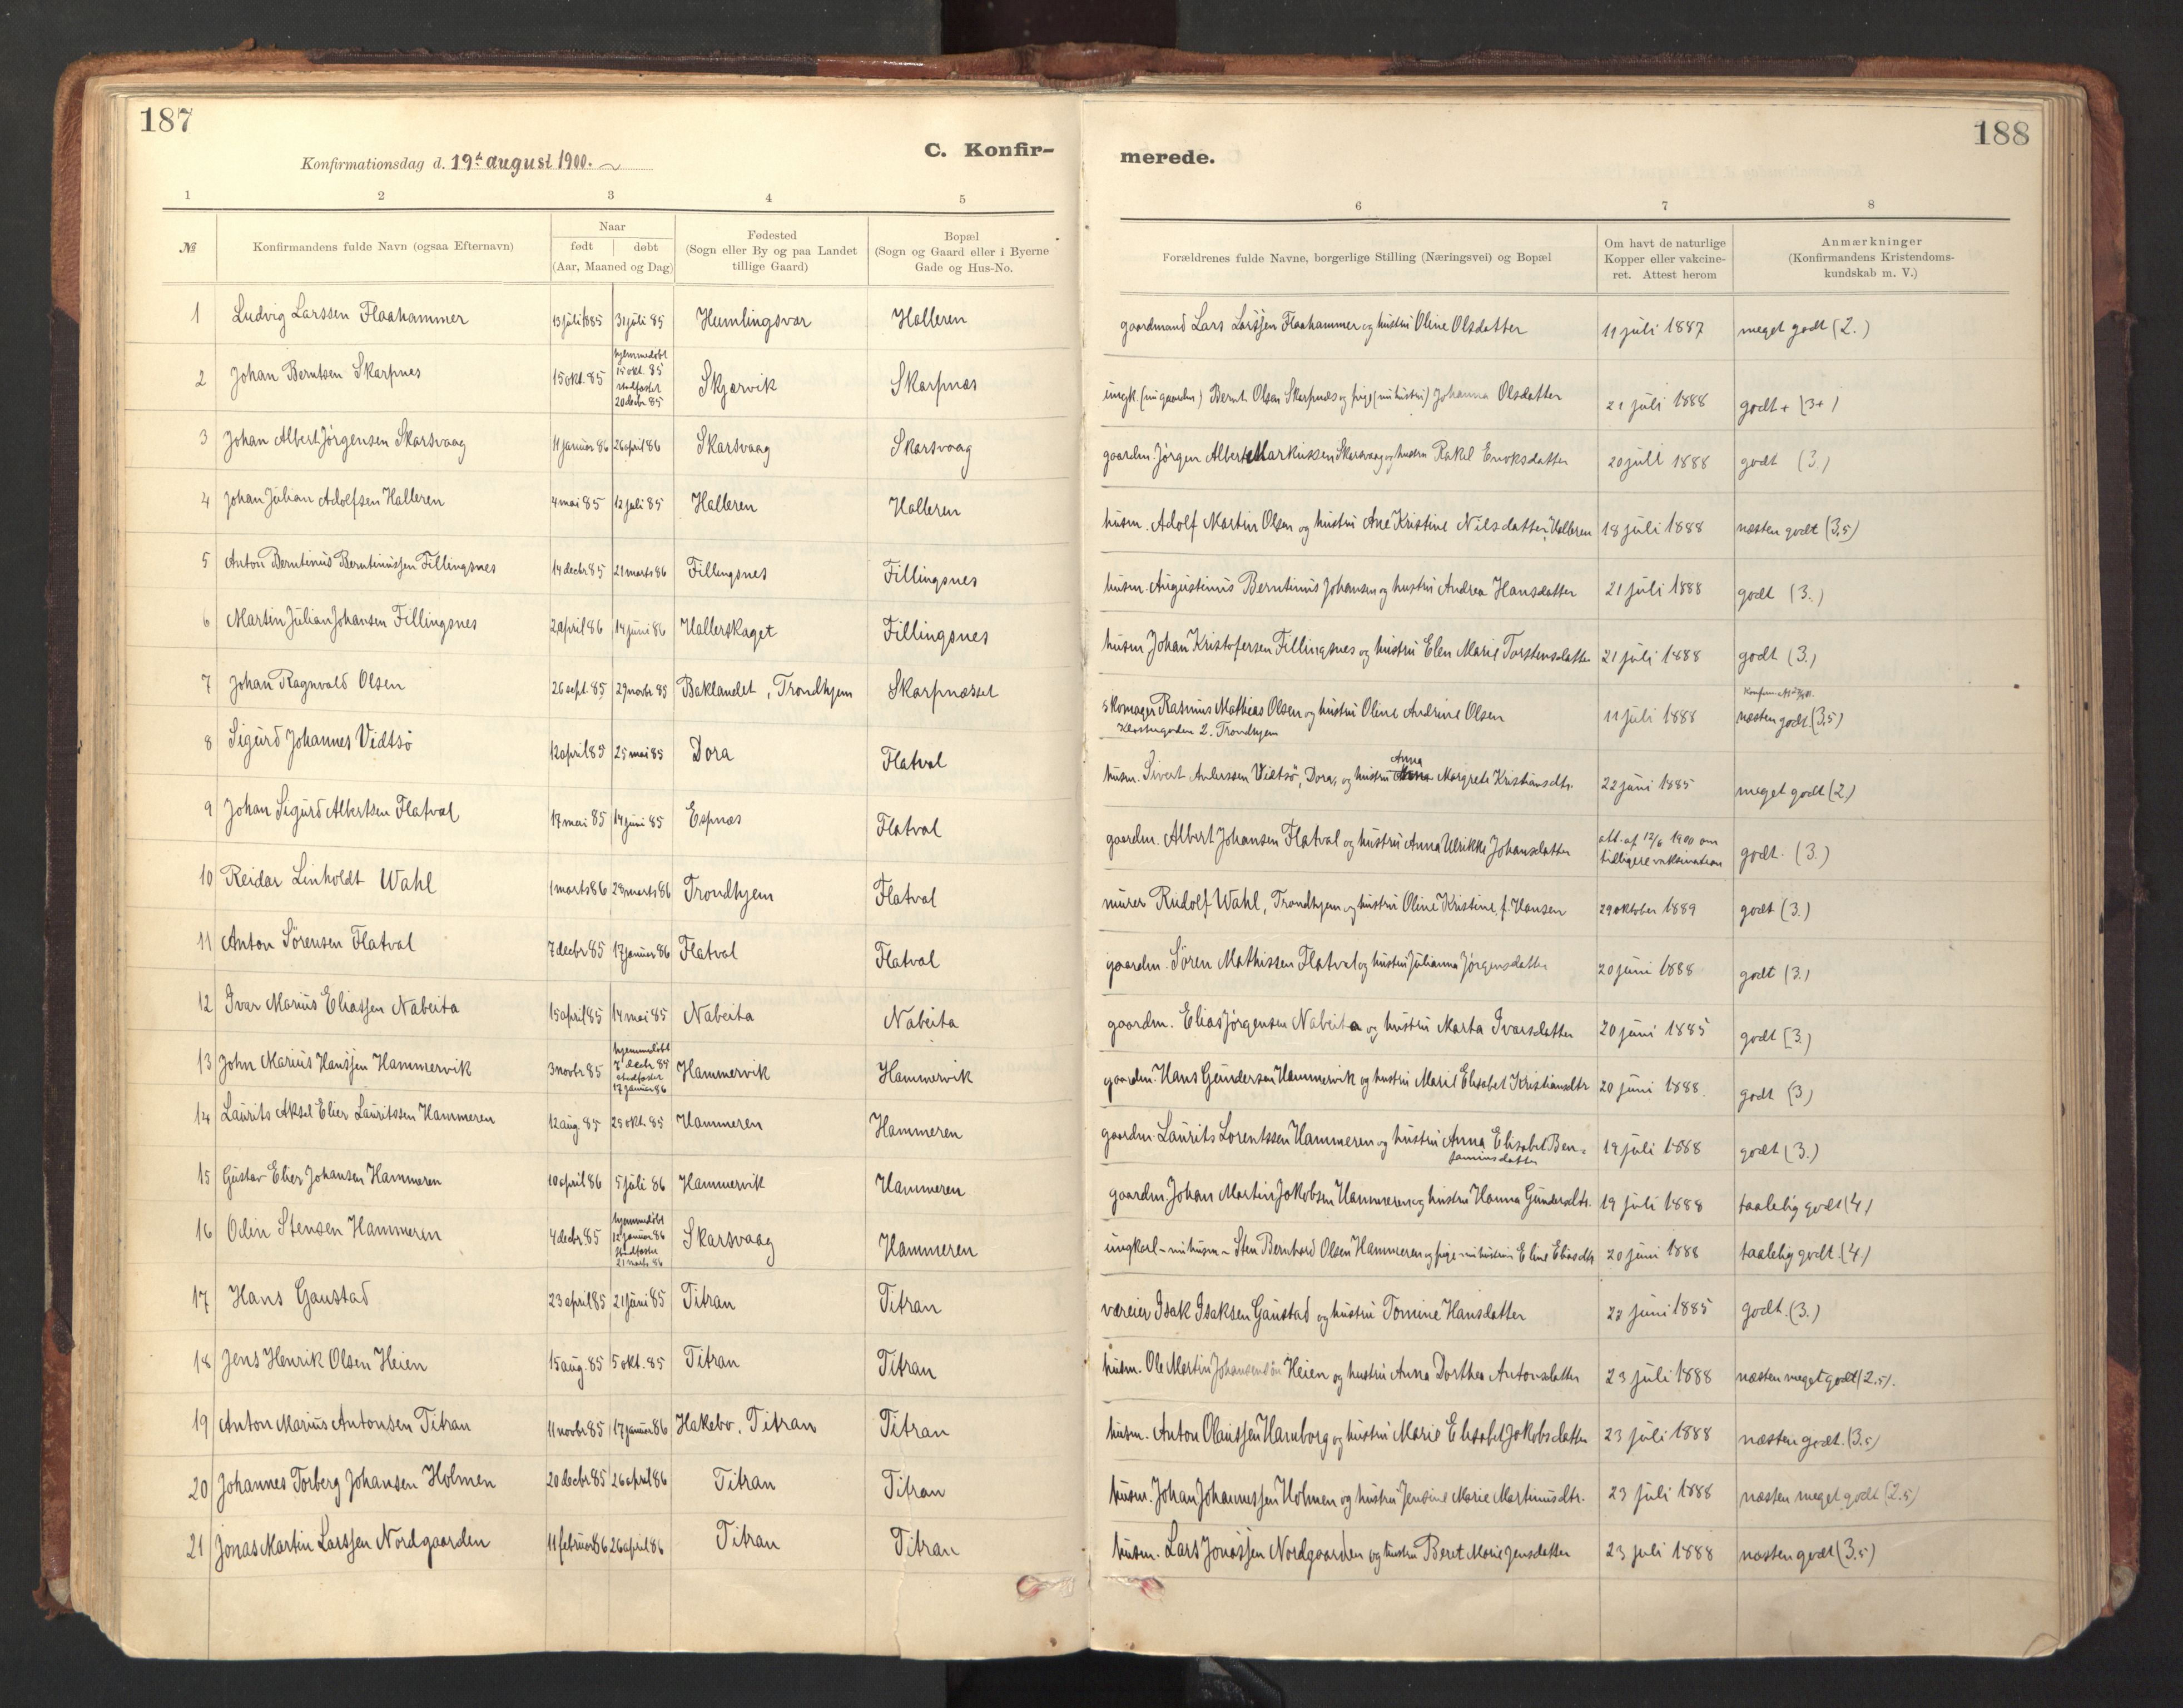 187
188
C. Konfir-
merede.
Konfirmationsdag d. 19de august 1900.
1 2 3 4 5 6 7 8
№ Konfirmandens fulde Navn (ogsaa Efternavn)
Naar
født døbt
(Aar, Maaned og Dag)
Fødested
(Sogn eller By og paa Landet
tillige Gaard)
Bopæl
(Sogn og Gaard eller i Byerne
Gade og Hus-No.
Forældrenes fulde Navne, borgerlige Stilling (Næringsvei) og Bopæl
Om havt de naturlige
Kopper eller vakcine-
ret. Attest herom
Anmærkninger
(Konfirmandens Kristendoms-
kundskab m. V.)
1 Ludvig Larssen Flaahammer 13 juli 1885 31 juli 85 Humlingsvær Halleren gaardmand Lars Larssen Flaahammer og hustru Oline Olsdatter 11 juli 1887 meget godt (2.)
2 Johan Berntsen Skarpnes 15 okt. 85 hjemmedøbt 15 okt. 85 stadfæstet 20 decbr 85 Skjærvik Skarpnæs ungk. (nu gaardm) Bernt Olsen Skarpnæs og pige (nu hustru) Johanna Olsdatter 21 juli 1888 godt + (3+)
3 Johan Albert Jörgensen Skarsvaag 11 januar 86 26 april 86 Skarsvaag Skarsvaag gaardm. Jörgen Albert Markussen Skarsvaag og hustru Rakel Enoksdatter 20 juli 1888 godt (3.)
4 Johan Julian Adolfsen Halleren 4 mai 85 12 juli 85 Halleren Halleren husm. Adolf Martin Olsen og hustru Ane Kristine Nilsdatter, Halleren 18 juli 1888 næsten godt (3,5)
5 Anton Berntinus Berntinussen Fillingsnes 14 decbr 85 21 marts 86 Fillingsnes Fillingsnes husm. Augustinus Berntinus Johansen og hustru Andrea Hansdatter 21 juli 1888 godt (3.)
6 Martin Julian Johansen Fillingsnes 2 april 86 14 juni 86 Hallerskaget Fillingsnes husm Johan Kristofersen Fillingsnes og hustru Elen Marie Torstensdatter 21 juli 1888 godt (3.)
7 Johan Ragnvald Olsen 26 sept. 85 29 novbr 85 Baklandet, Trondhjem Skarpnæsset skomager Rasmus Mathias Olsen og hustru Oline Andrine Olsen
2. Trondhjem 11 juli 1888 næsten godt (3,5)
8 Sigurd Johannes Vidtsö 12 april 85 25 mai 85 Dora Flatval husm. Sivert Anderssen Vidtsö, Dora, og hustru Anna Margrete Kristiansdtr. 22 juni 1885 meget godt (2.)
9 Johan Sigurd Albertsen Flatval 17 mai 85 14 juni 85 Espnæs Flatval gaardm. Albert Johansen Flatval og hustru Anna Ulrikke Johansdatter att. af 12/6 1900 om
tidligere vaksination godt. (3.)
10 Reidar Linholdt Wahl 1 marts 86 28 marts 86 Trondhjem Flatval murer Rudolf Wahl, Trondhjem og hustru Oline Kristine, f. Hansen 29 oktober 1889 godt (3.)
11 Anton Sörensen Flatval 7 decbr 85 17 januar 86 Flatval Flatval gaardm. Sören Mathissen Flatval og hustru Julianna Jörgensdatter 20 juni 1888 godt (3.)
12 Ivar Marius Eliassen Nabeita 15 april 85 14 mai 85 Nabeita Nabeita gaardm. Elias Jörgensen Nabeita og hustru Marta Ivarsdatter 20 juni 1885 godt (3.)
13 John Marius Hanssen Hammervik 3 novbr 85 hjemmedøbt 7 decbr 85 stadfæstet 17 januar 86 Hammervik Hammervik gaardm. Hans Gundersen Hammervik og hustru Marie Elisabet Kristiansdtr 20 juni 1888. godt (3)
14 Laurits Aksel Elier Lauritssen Hammeren 12 aug. 85 25 okt. 85 Hammeren Hammeren gaardm. Laurits Lorentssen Hammeren og hustru Anna Elisabet Ben-
jaminsdatter 19 juli 1888 godt (3.)
15 Gustav Elier Johansen Hammeren 10 april 86 5 juli 86 Hammervik Hammeren gaardm. Johan Martin Jakobsen Hammeren og hustru Hanna Gundersdtr. 19 juli 1888 taalelig godt (4)
16 Odin Stensen Hammeren 4 decbr. 85 hjemmedøbt 12 januar 86 stadfæstet 21 marts 86 Skarsvaag Hammeren ungkarl - nu husm - Sten Bernhard Olsen Hammeren og pige - nu hustru Eline Eliasdtr 20 juni 1888 taalelig godt. (4)
17 Hans Gaustad 23 april 85 21 juni 85 Titran Titran væreier Isak Isaksen Gaustad og hustru Tomine Hansdatter 22 juni 1885 godt. (3.)
18 Jens Henrik Olsen Heien 15 aug. 85 5 okt. 85 Titran Titran husm. Ole Martin Johansensön Heien og hustru Anna Dorthea Antonsdatter 23 juli 1888 næsten meget godt (2.5).
19 Anton Marius Antonsen Titran 11 novbr 85 17 januar 86 Hakebo, Titran Titran husm. Anton Olaussen Hamborg og hustru Marie Elisabet Jakobsdatter 23 juli 1888 næsten godt. (3.5)
20 Johannes Torberg Johansen Holmen 20 decbr 85 26 april 86 Titran Titran husm. Johan Johannessen Holmen og hustru Jensine Marie Martinusdtr. 23 juli 1888 næsten meget godt (2.5)
21 Jonas Martin Larssen Nordgaarden 11 februar 86 26 april 86 Titran Titran husm. Lars Jonassen Nordgaarden og hustru Beret Marie Jensdatter 23 juli 1888 næsten godt (3.5)